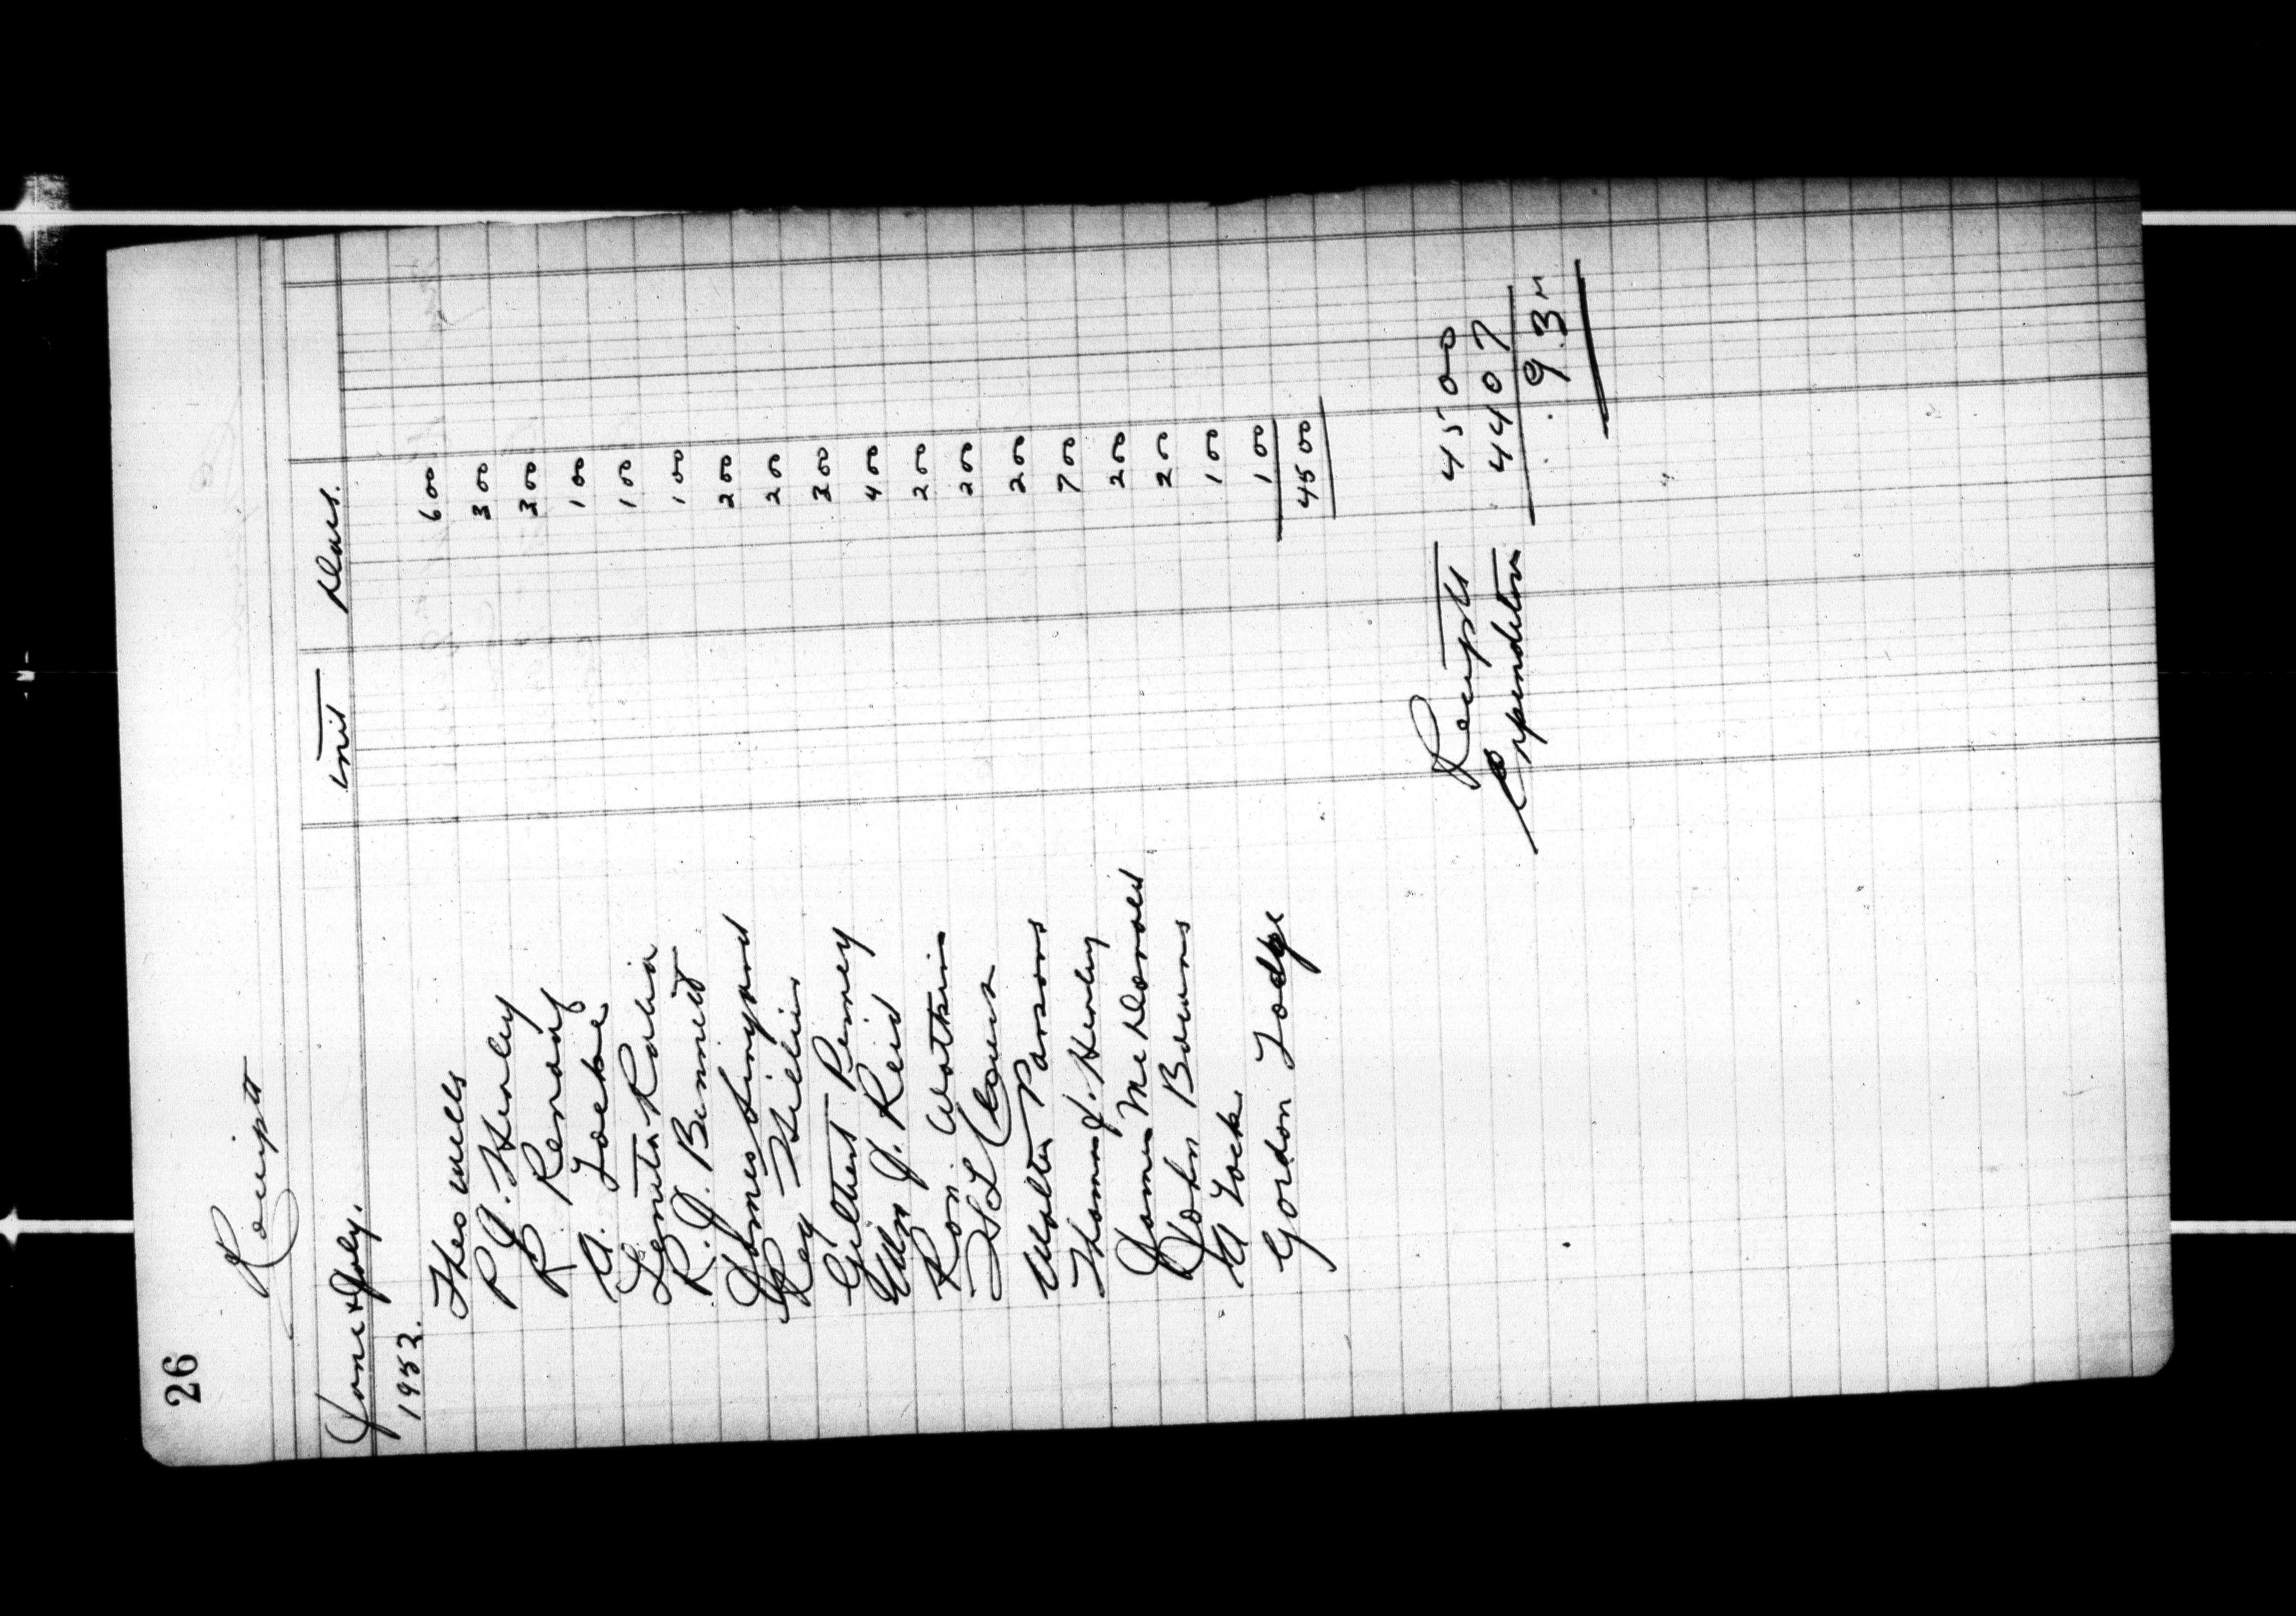 26
Receipts
June & July. Init Dues.
1952.
Thos Wells 6 00
P. J. Henley 3 00
R. Renouf 3 00
A. Locke 1 00
1 00
R. J. Bennett 1 00
James Linyard 2 00
Roy Hillier 2 00
Gilbert Penney 3 00
Wm J. Reid 4 00
Ron. Watkin 2 00
2 00
Walter Parsons 2 00
Thomas J. Henley 7 00
James McDonald 2 00
John Bowns 2 00
A Lock 1 00
Gordon Lodge 1 00
45 00
Receipts 45 00
Expenditure 44 07
.93